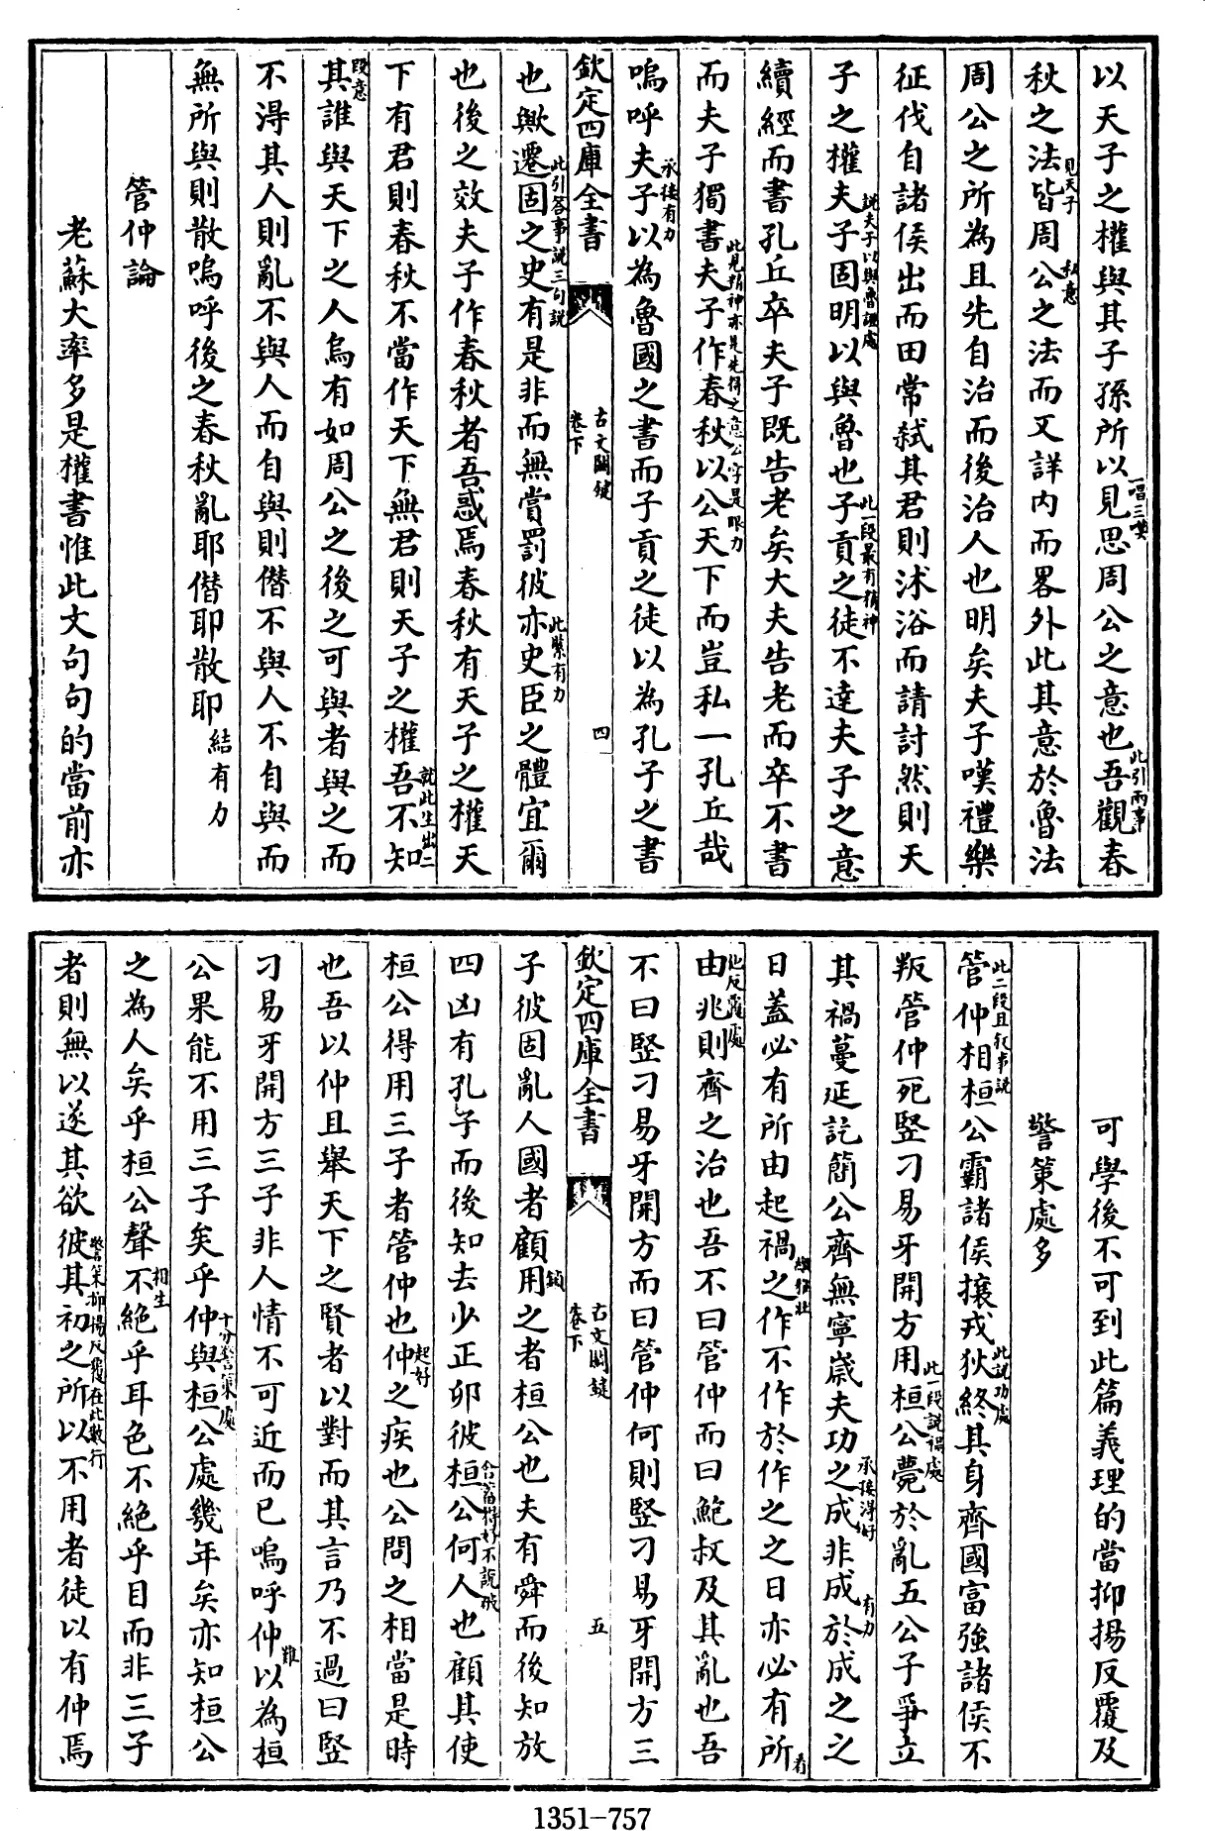 以天子之權與其子孫所以見思周公之意也吾觀春
一唱三嘆
此引兩事
秋之法皆周公之法而又詳內而畧外此其意於魯法
見天子
周公之所為且先自治而後治人也明矣夫子嘆禮樂
征伐自諸侯出而田常弒其君則沭浴而請討然則天
子之權夫子固明以與魯也子貢之徒不達夫子之意
說夫子以與魯
此一段最有精神
續經而書孔丘卒夫子既告老矣大夫告老而卒不書
而夫子獨書夫子作春秋以公天下而豈私一孔丘哉
此見精神亦是先得之意公字是眼力
嗚呼夫子以為魯國之書而子貢之徒以為孔子之書
承接有力
欽定四庫全書
古文關鍵
卷下
四
也歟遷固之史有是非而無賞罰彼亦史臣之體宜爾
此引答事說三句說
此繫有力
也後之效夫子作春秋者吾惑焉春秋有天子之權天
下有君則春秋不當作天下無君則天子之權吾不知
就此生出二
其誰與天下之人烏有如周公之後之可與者與之而
段意
不得其人則亂不與人而自與則僭不與人不自與而
無所與則散嗚呼後之春秋亂耶僭耶散耶
結有力
管仲論
老蘇大率多是權書惟此文句句的當前亦
可學後不可到此篇義理的當抑揚反覆及
警策處多
管仲相桓公霸諸侯攘戎狄終其身齊國富強諸侯不
此二段且叙事說
此說功處
叛管仲死竪刁易牙開方用桓公薨於亂五公子爭立
此一段說禍處
其禍蔓延訖簡公齊無寧嵗夫功之成非成於成之之
承接得好
有力
日蓋必有所由起禍之作不作於作之之日亦必有所
看
由兆則齊之治也吾不曰管仲而曰鮑叔及其亂也吾
不曰竪刁易牙開方而曰管仲何則竪刁易牙開方三
欽定四庫全書
古文關鍵
卷下
五
子彼固亂人國者顧用之者桓公也夫有舜而後知放
四凶有孔子而後知去少正卯彼桓公何人也顧其使
含蓄得好不說破
桓公得用三子者管仲也仲之疾也公問之相當是時
起好
也吾以仲且舉天下之賢者以對而其言乃不過曰竪
刁易牙開方三子非人情不可近而已嗚呼仲以為桓
難
公果能不用三子矣乎仲與桓公處幾年矣亦知桓公
十分警策處
之為人矣乎桓公聲不絕乎耳色不絕乎目而非三子
相生
者則無以遂其欲彼其初之所以不用者徒以有仲焉
警策抑揚反覆在此數行
1351-757